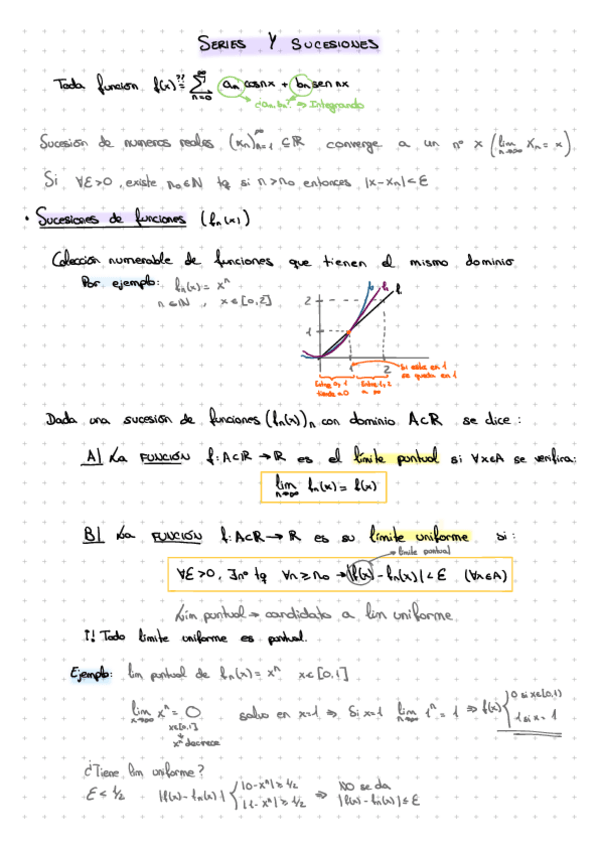 SERIES Y SUCESIONES
Toda función f(x) ?!= ∞ Σ n=0 an cosnx + bn sen nx
¿an, bn? ⇒ Integrando
Sucesión de numeros reales (xn)∞n=1 ⊆ R converge a un nº x (lim n→∞ Xn = x)
Si ∀ε>0, existe n0∈N tq si n>n0 entonces |x-xn|<ε
• Sucesiones de funciones (fn(x))
Colección numerable de funciones que tienen el mismo dominio
Por ejemplo: fn(x) = x^n
n∈N, x∈[0,2]
2
1
1 2
Si esta en 1
se queda en 1
Entre 0, 1
tiende a 0
Entre 1, 2
a ∞
Dada una sucesión de funciones (fn(x))n con dominio A⊂R se dice:
A) La FUNCIÓN f: A⊂R → R es el límite puntual si ∀x∈A se verifica:
lim n→∞ fn(x) = f(x)
B) La FUNCIÓN f: A⊂R → R es su límite uniforme si:
límite puntual
∀ε>0, ∃nº tq ∀n≥n0 → |f(x) - fn(x)| < ε (∀x∈A)
Lim puntual → candidato a lim uniforme.
¡! Todo límite uniforme es puntual.
Ejemplo: lim puntual de fn(x) = x^n x∈[0,1]
lim x→∞ x^n = 0 salvo en x=1 ⇒ Si x=1 lim n→∞ 1^n = 1 ⇒ f(x) { 0 si x∈[0,1)
1 si x=1
x∈[0,1]
x^n decrece
¿Tiene lim uniforme?
ε < 1/2 |f(x) - fn(x)| { |0-x^n| ≥ 1/2 ⇒ NO se da
|1-x^n| ≥ 1/2 |f(x) - fn(x)| ≤ ε